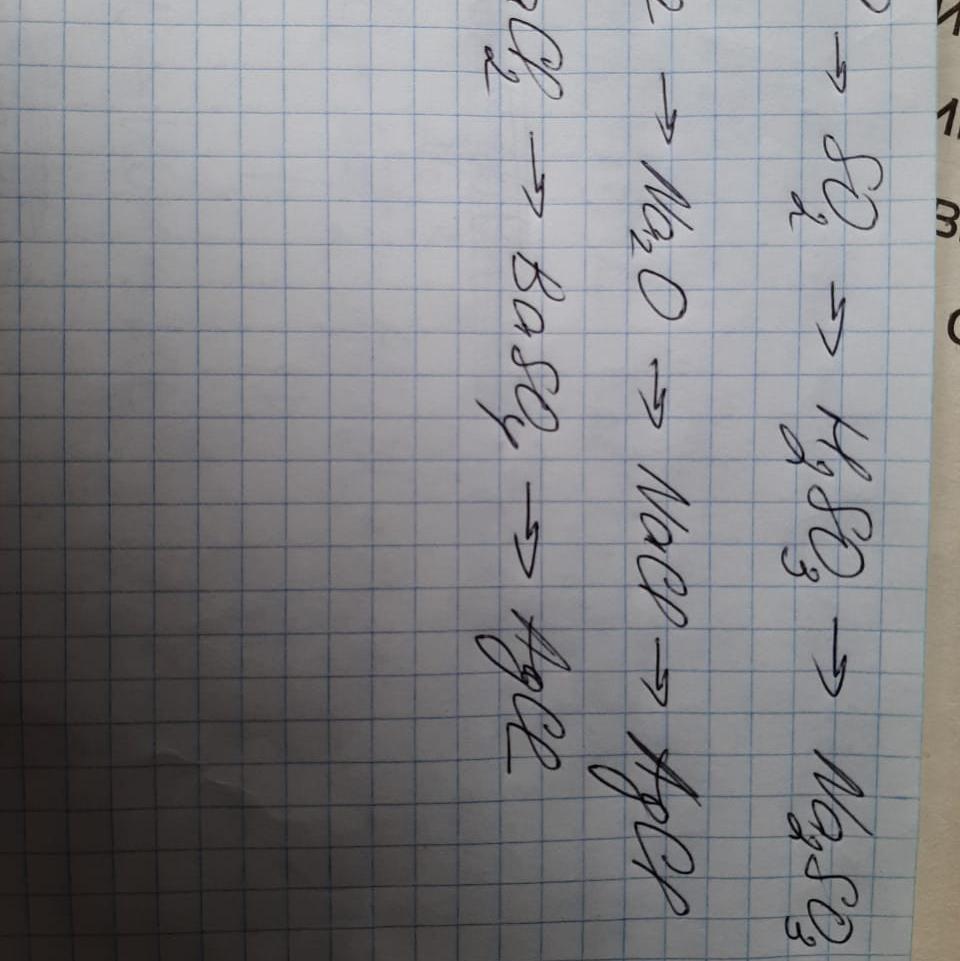 → SO₂ → H₂SO₃ → Na₂SO₃
→ Na₂O → NaCl → AgCl
Cl₂ → BaSO₄ → AgCl